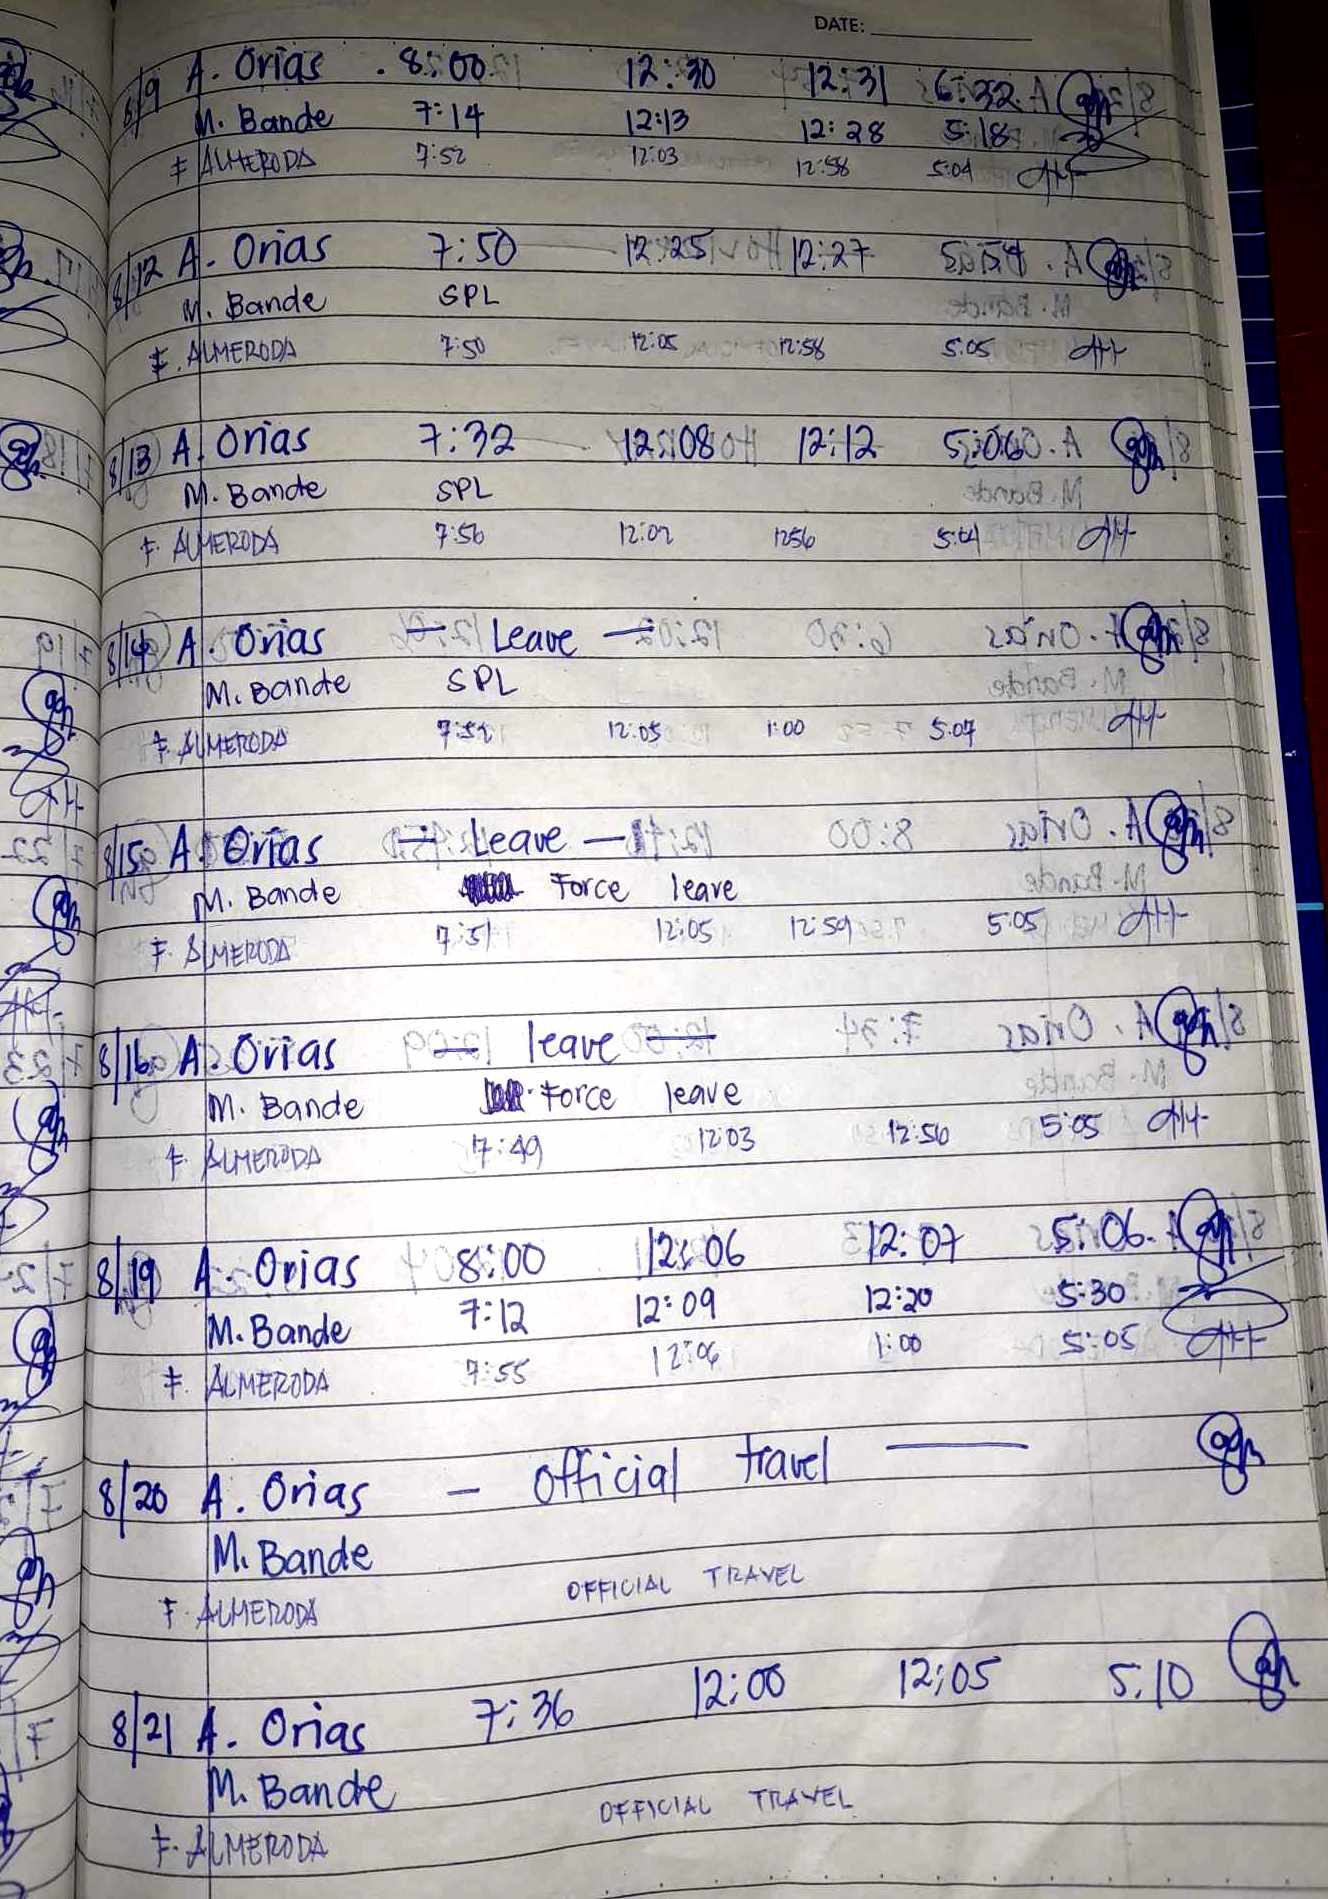 DATE:
8/9 A. Orias 8:00 12:30 12:31 6:32
M. Bande 7:14 12:13 12:28 5:18
F ALMERODA 7:52 12:03 12:58 5:04
8/12 A. Orias 7:50 12:25 12:27
M. Bande SPL
F. ALMERODA 7:50 12:05 12:58 5:05
8/13 A. Orias 7:32 12:08 12:12 5:06
M. Bande SPL
F. ALMERODA 7:56 12:02 1256 5:04
8/14 A. Orias — Leave —
M. Bande SPL
F. ALMERODA 7:52 12:05 1:00 5:07
8/15 A. Orias — Leave —
M. Bande Force leave
F. ALMERODA 7:51 12:05 12:59 5:05
8/16 A. Orias — leave —
M. Bande Force leave
F. ALMERODA 7:49 12:03 12:56 5:05
8/19 A. Orias 8:00 12:06 12:07 5:06
M. Bande 7:12 12:09 12:20 5:30
F. ALMERODA 7:55 12:06 1:00 5:05
8/20 A. Orias — official travel —
M. Bande
F. ALMERODA OFFICIAL TRAVEL
8/21 A. Orias 7:36 12:00 12:05 5:10
M. Bande
F. ALMERODA OFFICIAL TRAVEL